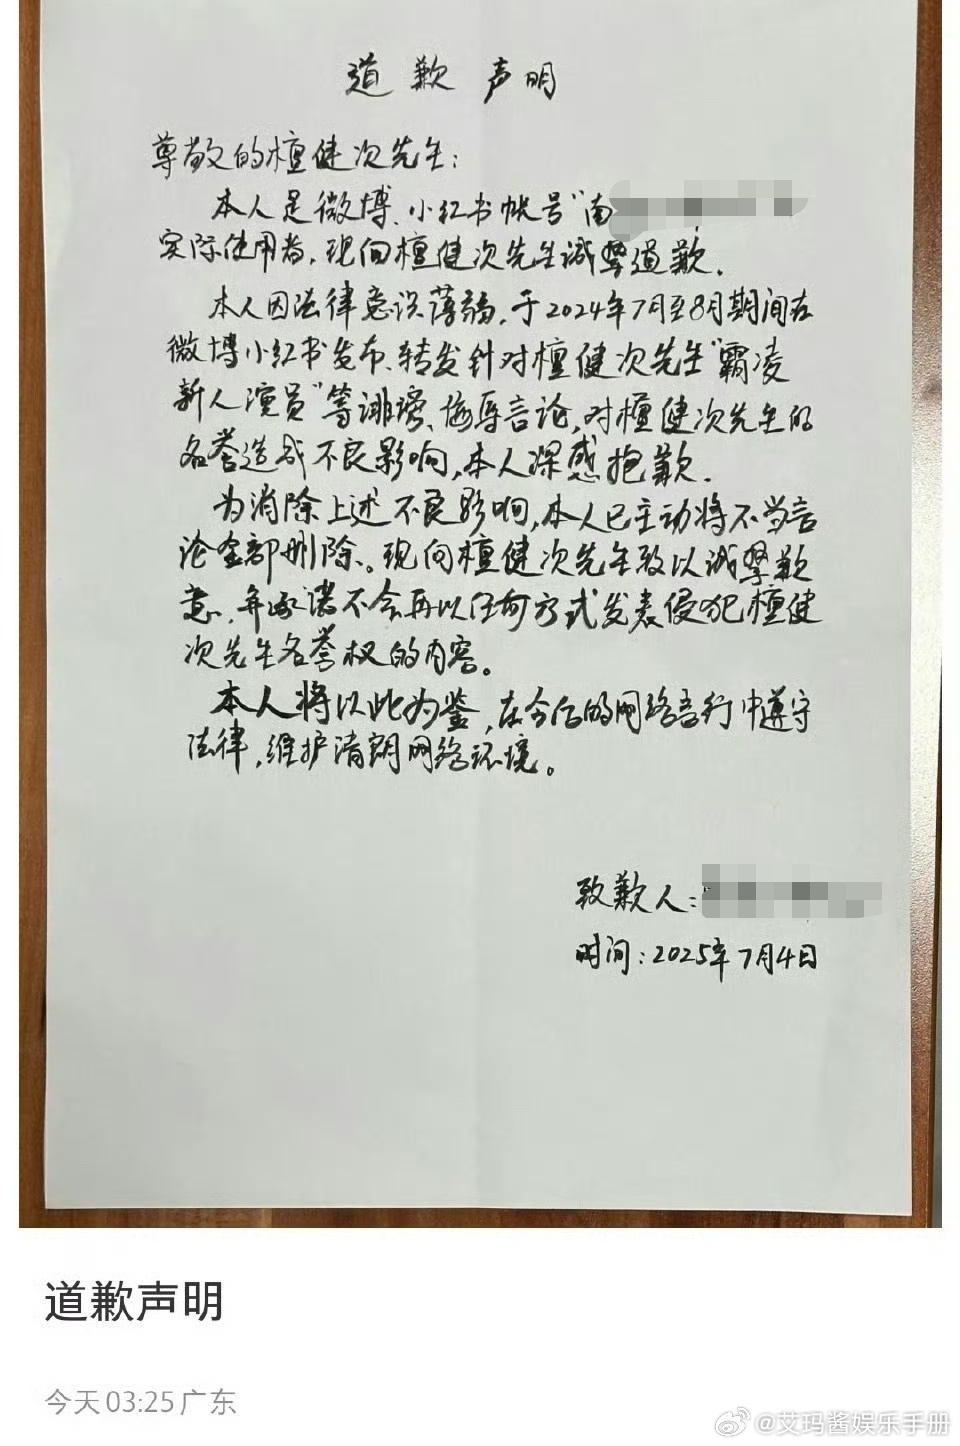 道歉声明
尊敬的檀健次先生：
本人是微博、小红书帐号“南
实际使用者，现向檀健次先生诚挚道歉.
本人因法律意识薄弱，于2024年7月至8月期间在
微博小红书发布、转发针对檀健次先生“霸凌
新人演员”等诽谤、侮辱言论，对檀健次先生的
名誉造成不良影响，本人深感抱歉.
为消除上述不良影响，本人已主动将不当言
论全部删除。现向檀健次先生致以诚挚歉
意，并承诺不会再以任何方式发表侵犯檀健
次先生名誉权的内容。
本人将以此为鉴，在今后的网络言行中遵守
法律，维护清朗网络环境。
致歉人：
时间：2025年7月4日
道歉声明
今天 03:25 广东
@艾玛酱娱乐手册